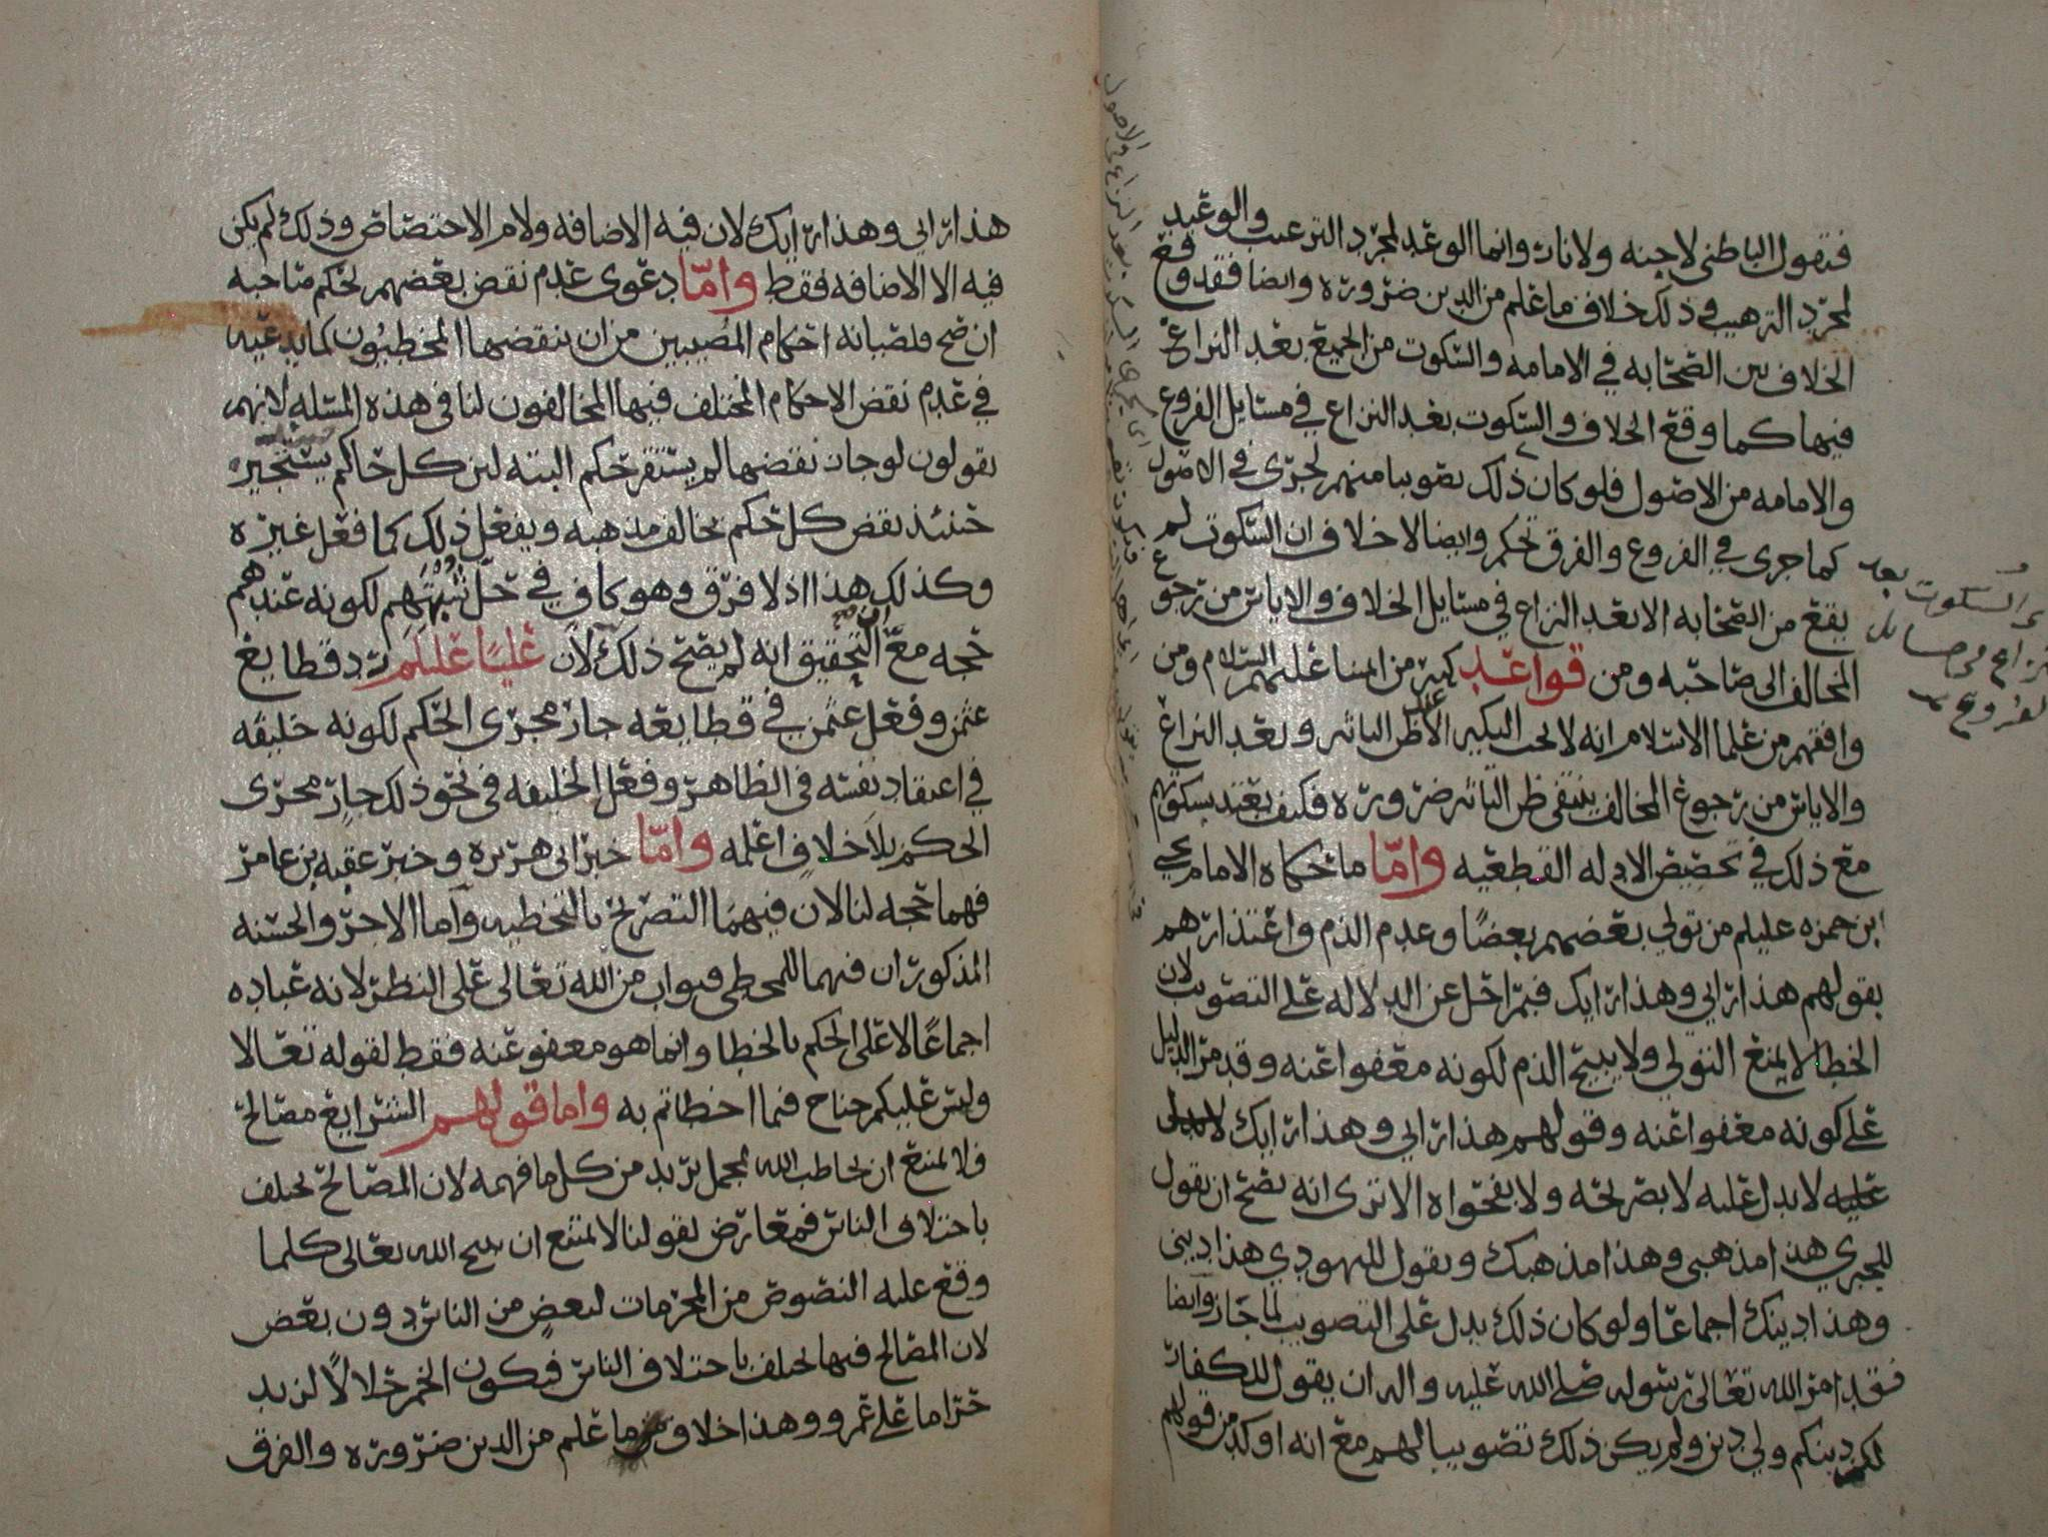 فتقول الباطني لا جنه ولا نار وانما الوعد لمجرد الترغيب والوعيد
لمجرد الترهيب وذلك خلاف ما علم من الدين ضرورة وايضا فقد وقع
الخلاف بين الصحابه في الامامه والسكوت من الجميع بعد النزاع
فيها كما وقع الخلاف والسكوت بعد النزاع في مسايل الفروع
والامامه من الاصول فلو كان ذلك تصويبا منهم لجرى في الاصول
كما جرى في الفروع والفرق تحكم وايضا لا خلاف ان السكوت لم
يقع من الصحابه الا بعد النزاع في مسايل الخلاف والاياس من رجوع
المخالف الى صاحبه ومن قواعد كثير من ايمتنا عليهم السلام ومن
وافقهم من علما الاسلام انه لا يجب النكير الا عند ظن التاثير وبعد النزاع
والاياس من رجوع المخالف ينتفي ظن التاثير ضرورة فكيف يعتد بسكوتهم
مع ذلك في تخصيص الادله القطعيه واما ما حكاه الامام يحيى
ابن حمزه عليلم من تولي بعضهم بعضا وعدم الذم واعتذارهم
بقولهم هذا رايي وهذا رايك فبمراحل عن الدلاله على التصويب لان
الخطا لا يمنع التولي ولا يبيح الذم لكونه معفوا عنه وقد مر الدليل
على كونه معفوا عنه وقولهم هذا رايي وهذا رايك
لا يدل عليه لا بصريحه ولا بفحواه الا ترى انه يصح ان يقول
للجبري هذا مذهبي وهذا مذهبك ويقول لليهودي هذا ديني
وهذا دينك اجماعا ولو كان ذلك يدل على التصويب لما جاز وايضا
فقد امر الله تعالى رسوله صلى الله عليه واله ان يقول للكفار
لكم دينكم ولي دين ولم يكن ذلك تصويبا لهم مع انه اوكد من قولهم
السكوت بعد
النزاع في مسايل
الفروع
هذا رايي وهذا رايك لان فيه الاضافه ولام الاختصاص وذلك لم يكن
فيه الا الاضافه فقط واما دعوى عدم نقض بعضهم لحكم صاحبه
ان صح فلصيانه احكام المصيبين من ان ينقضها المخطيون كما يدعيه
في عدم نقض الاحكام المختلف فيها المخالفون لنا في هذه المسئله لانهم
يقولون لو جاز نقضها لم يستقر حكم البته لان كل حاكم يستجيز
حينئذ نقض كل حكم يخالف مذهبه ويفعل ذلك كما فعل غيره
وكذلك هذا اذ لا فرق وهو كاف في حل شبهتهم لكونه عندهم
حجه مع ان التحقيق انه لم يصح ذلك لان عليا عليلم رد قطايع
عثمن وفعل عثمن في قطايعه جار مجرى الحكم لكونه خليفه
في اعتقاد نفسه في الظاهر وفعل الخليفه في نحو ذلك جار مجرى
الحكم بلا خلاف اعلمه واما خبر ابي هريره وخبر عقبه بن عامر
فهما حجه لنا لان فيهما التصريح بالتخطيه واما الاجر والحسنه
المذكوران فيهما للمخطي فثواب من الله تعالى على النظر لانه عباده
اجماعا لا على الحكم بالخطا وانما هو معفو عنه فقط لقوله تعالا
وليس عليكم جناح فيما اخطاتم به واما قولهم الشرايع مصالح
فلا يمتنع ان يخاطب الله بمجمل يريد من كل ما فهمه لان المصالح تختلف
باختلاف الناس فمعارض بقولنا لا يمتنع ان يبيح الله تعالى كلما
وقع عليه النصوص من المحرمات لبعض من الناس دون بعض
لان المصالح فيها تختلف باختلاف الناس فيكون الخمر حلالا لزيد
حراما على عمرو وهذا خلاف ما علم من الدين ضروره والفرق